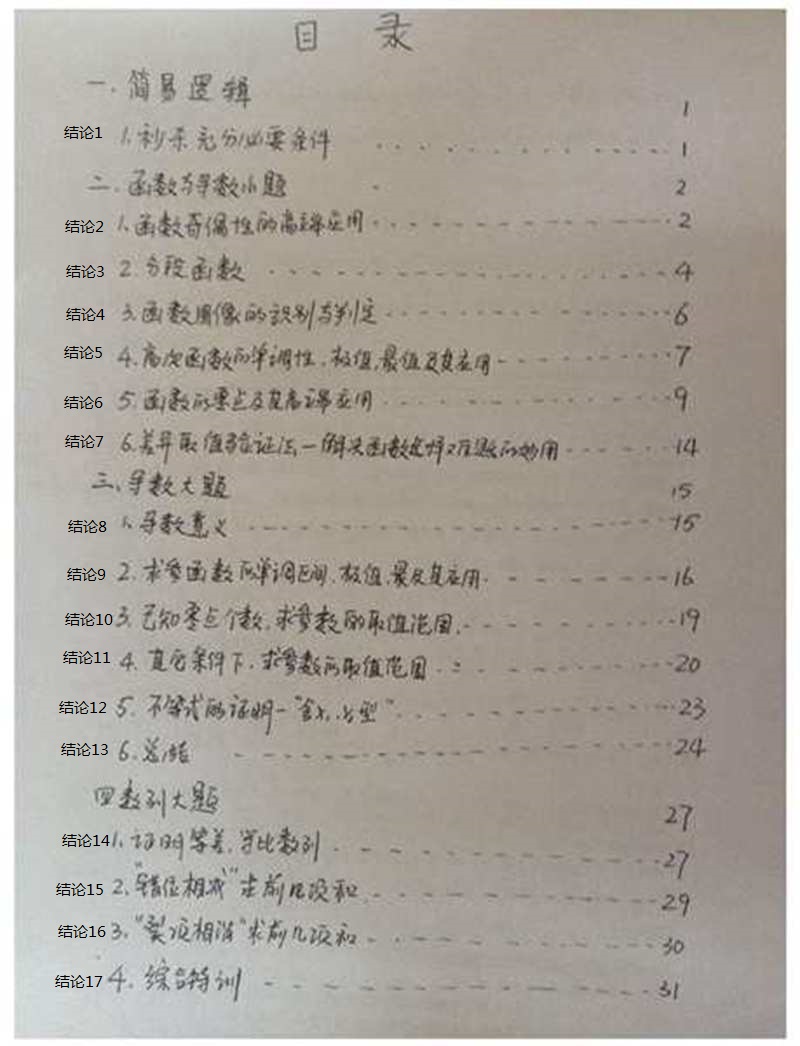 目 录
一.简易逻辑 1
结论1 1.秒杀充分必要条件 1
二.函数与导数小题 2
结论2 1.函数奇偶性的高端应用 2
结论3 2.分段函数 4
结论4 3.函数图像的识别与判定 6
结论5 4.高次函数的单调性、极值、最值及其应用 7
结论6 5.函数的零点及其高端应用 9
结论7 6.差异取值验证法—解决函数选择难题的妙用 14
三、导数大题 15
结论8 1.导数意义 15
结论9 2.求参函数的单调区间、极值、最及其应用 16
结论10 3.已知零点个数,求参数的取值范围. 19
结论11 4.其它条件下,求参数的取值范围 20
结论12 5.不等式的证明— 23
结论13 6.总结 24
四数列大题 27
结论14 1.证明等差,等比数列 27
结论15 2."错位相减"求前几项和 29
结论16 3."裂项相消"求前几项和 30
结论17 4.综合特训 31